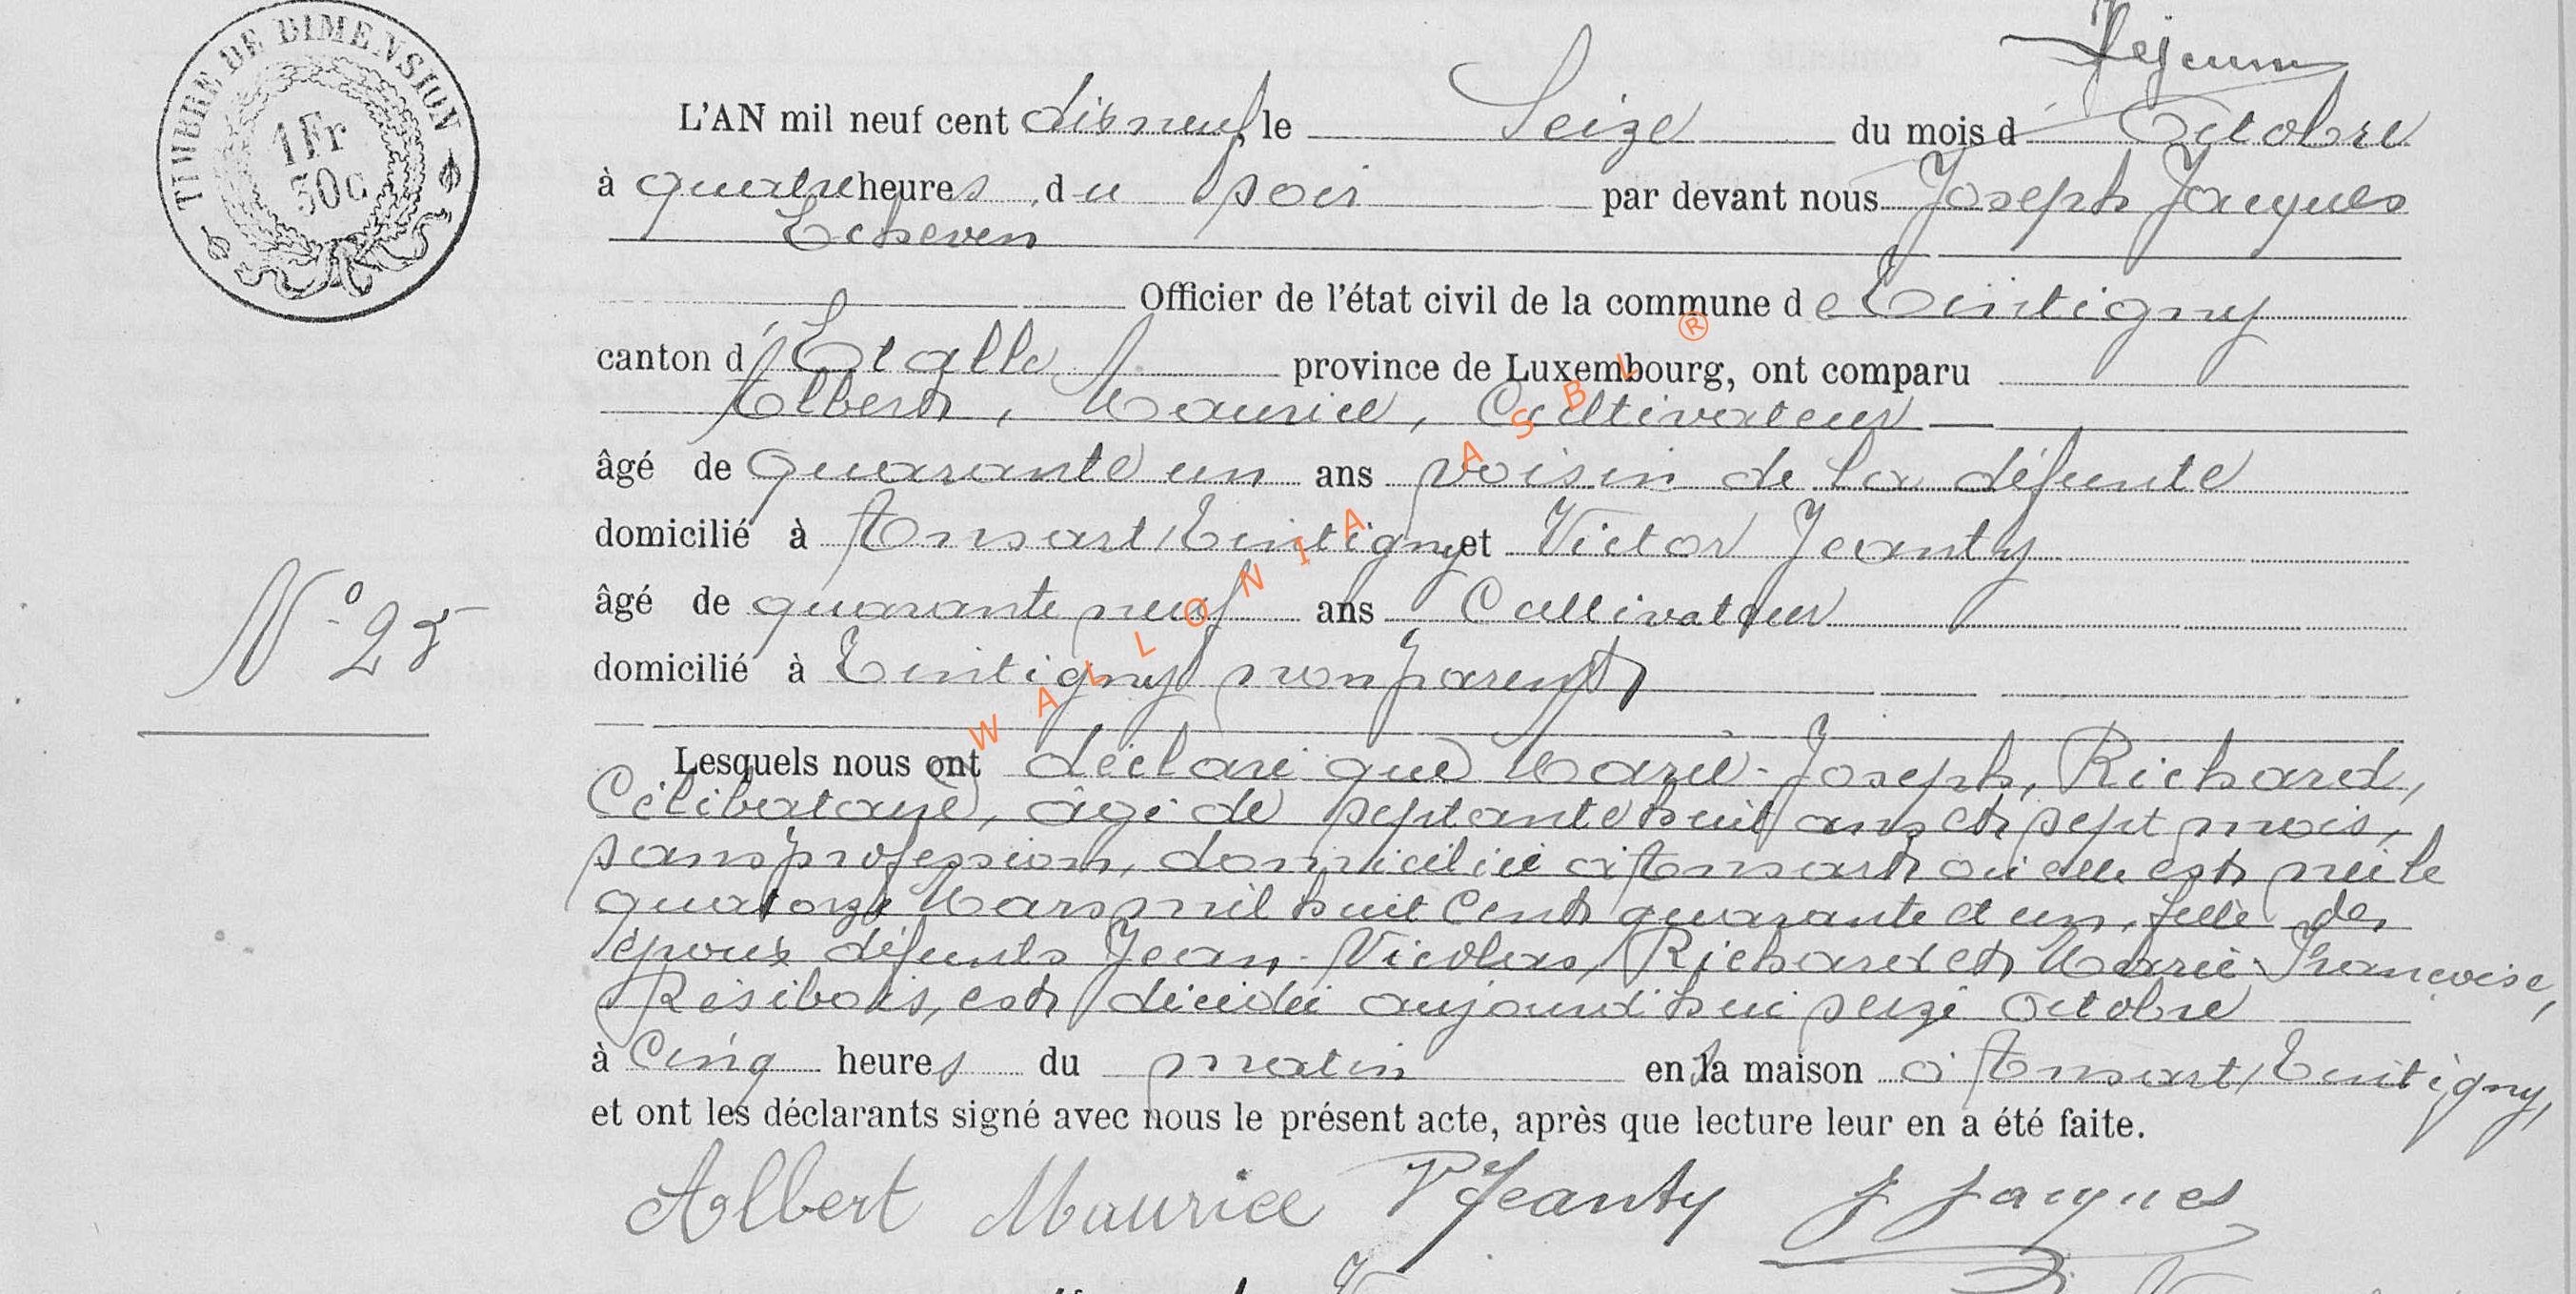 TIMBRE DE DIMENSION
1 Fr
50 C
Lejeune
L'AN mil neuf cent dix neuf, le Seize du mois d'Octobre
à quatre heures du soir par devant nous Joseph Jacques
Echevin
Officier de l'état civil de la commune de Tintigny
canton d'Etalle province de Luxembourg, ont comparu
Albert, Maurice, Cultivateur
âgé de quarante un ans voisin de la défunte
domicilié à Ansart/Tintigny et Victor Jeanty
âgé de quarante neuf ans Cultivateur
domicilié à Tintigny non parent
N° 25
Lesquels nous ont déclaré que Marie-Joseph, Richard,
Célibataire, âgé de septante huit ans et sept mois,
sans profession, domiciliée à Ansart où elle est née le
quatorze Mars mil huit cent quarante et un, fille des
époux défunts Jean-Nicolas, Richard et Marie Françoise,
Résibois, est décédée aujourd'hui seize Octobre
à Cinq heures du matin en sa maison à Ansart/Tintigny,
et ont les déclarants signé avec nous le présent acte, après que lecture leur en a été faite.
Albert Maurice V Jeanty J Jacques
WALLONIA ASBL ®